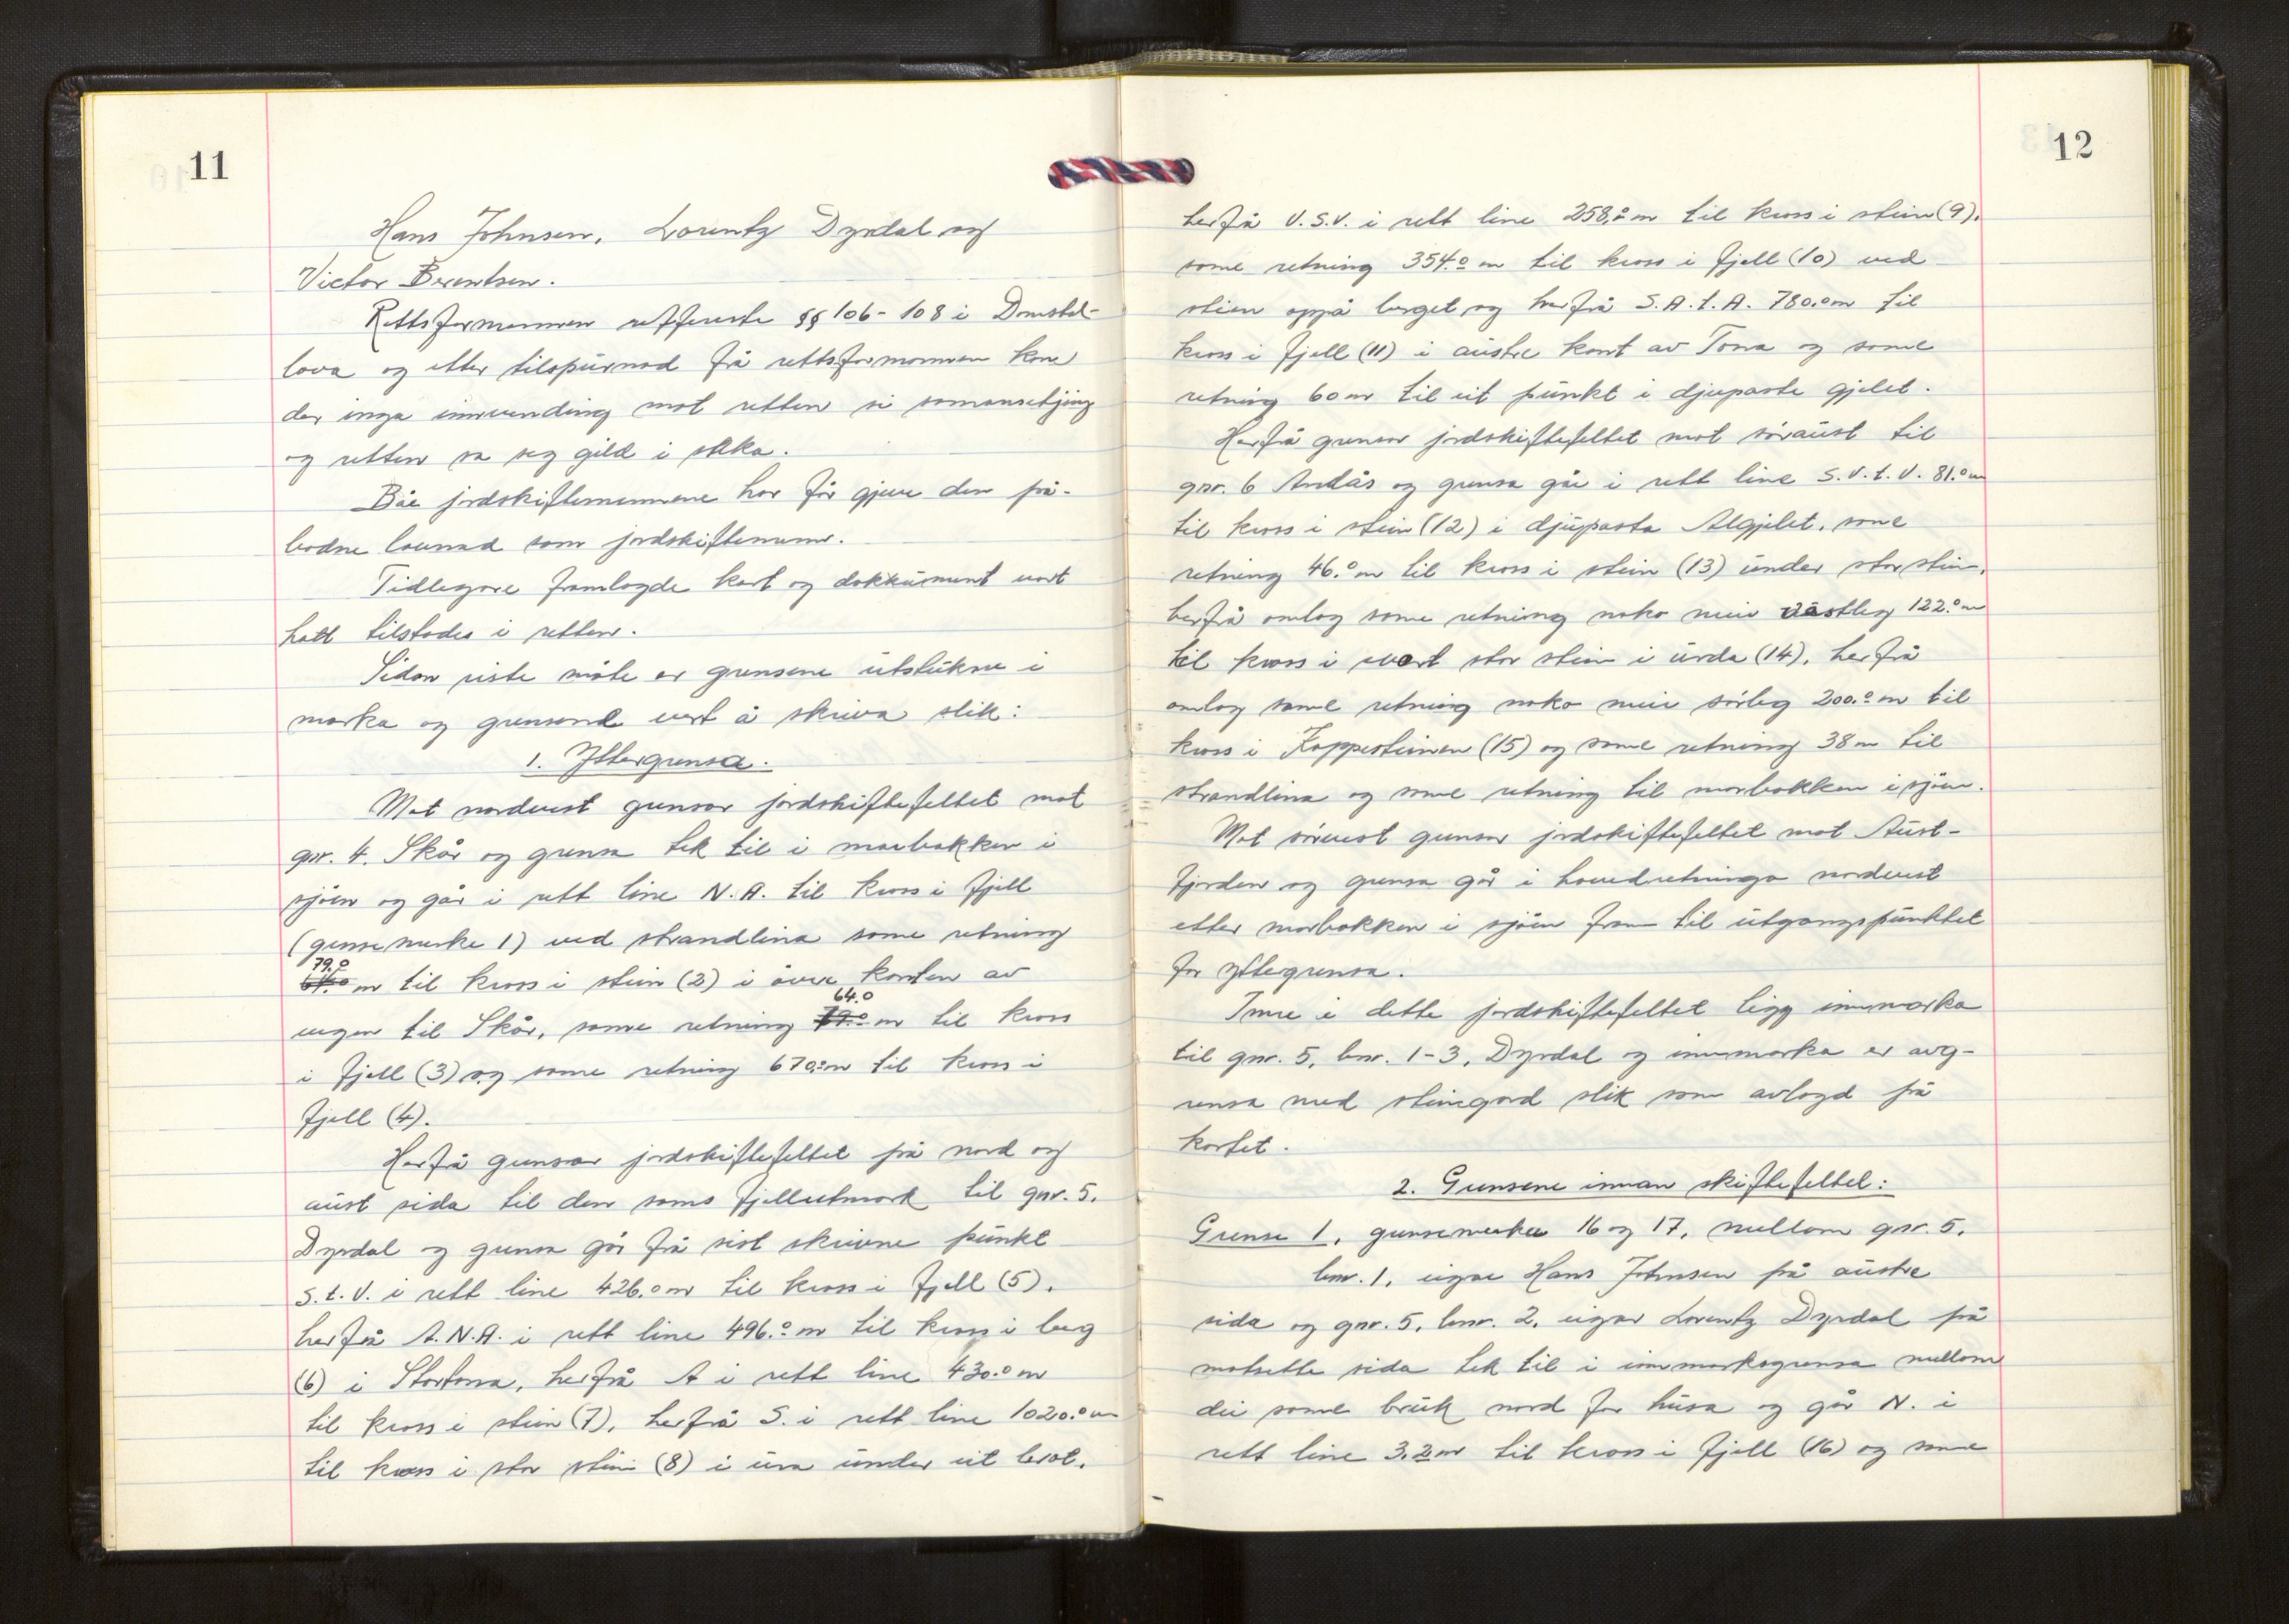 11
Hans Johnsen, Lorentz Dyrdal og
Victor Berentsen.
Rettsformannen refererte §§ 106-108 i Domstol-
lova og etter tilspurnad frå rettsformannen kom
der inga innvending mot retten si samansetjing
og retten sa seg gild i stk
Båe jordskiftemennene har før gjeve den på-
bodne lovnad som jordskiftemenn.
Tidlegare framlagde kart og dokkument vart
hatt tilstades i retten.
Sidan siste møte er grensene utstukne i
marka og grensene vert å skriva slik:
1. Yttergrensa.
Mot nordvest grensar jordskiftefeltet mot
gnr. 4. Skår og grensa tek til i marbakken i
sjøen og går i rett line N.A. til kross i fjell
(grensemerke 1) ved strandlina same retning
79.0
64.0 m til kross i stein (2) i øvre kanten av
64.0
vegen til Skår, same retning 79.0 m til kross
i fjell (3) og same retning 670.0 m til kross i
fjell (4).
Herfrå grensar jordskiftefeltet på nord og
aust sida til den sams fjellutmark til gnr. 5.
Dyrdal og grensa går frå sist skrivne punkt
S.t.V. i rett line 426.0 m til kross i fjell (5),
herfrå A.N.A. i rett line 496.0 m til kross i berg
(6) i Stortona, herfrå A i rett line 430.0 m
til kross i stein (7), herfrå S. i rett line 1020.0 m
til kross i stor stein (8) i ura under eit brot,
12
herfrå V.S.V. i rett line 258.0 m til kross i stein (9),
same retning 354.0 m til kross i fjell (10) ved
stien oppå berget og herfrå S.A.t.A. 780.0 m til
kross i fjell (11) i austre kant av Tona og same
retning 60 m til eit punkt i djupaste gjelet.
Herfrå grensar jordskiftefeltet mot søraust til
gnr. 6 Andås og grensa går i rett line S.V.t.V. 81.0 m
til kross i stein (12) i djupasta Algjelet, same
retning 46.0 m til kross i stein (13) under stor stein,
herfrå omlag same retning noko meir vestleg 122.0 m
til kross i svært stor stein i urda (14), herfrå
omlag same retning noko meir sørleg 200.0 m til
kross i Koppesteinen (15) og same retning 38 m til
strandlina og same retning til marbakken i sjøen.
Mot sørvest grensar jordskiftefeltet mot Aust-
fjorden og grensa går i hovedretninga nordvest
etter marbakken i sjøen fram til utgangspunktet
for yttergrensa.
Inne i dette jordskiftefeltet ligg innmarka
til gnr. 5, bnr. 1-3, Dyrdal og innmarka er avg-
rensa med steingard slik som avlagd på
kartet.
2. Grensene innan skiftefeltet:
Grense 1, grensemerke 16 og 17, mellom gnr. 5,
bnr. 1, eigar Hans Johnsen på austre
sida og gnr. 5, bnr. 2, eigar Lorentz Dyrdal på
motsette sida tek til i innmarksgrensa mellom
dei same bruk nord for husa og går N. i
rett line 3.2 m til kross i fjell (16) og same